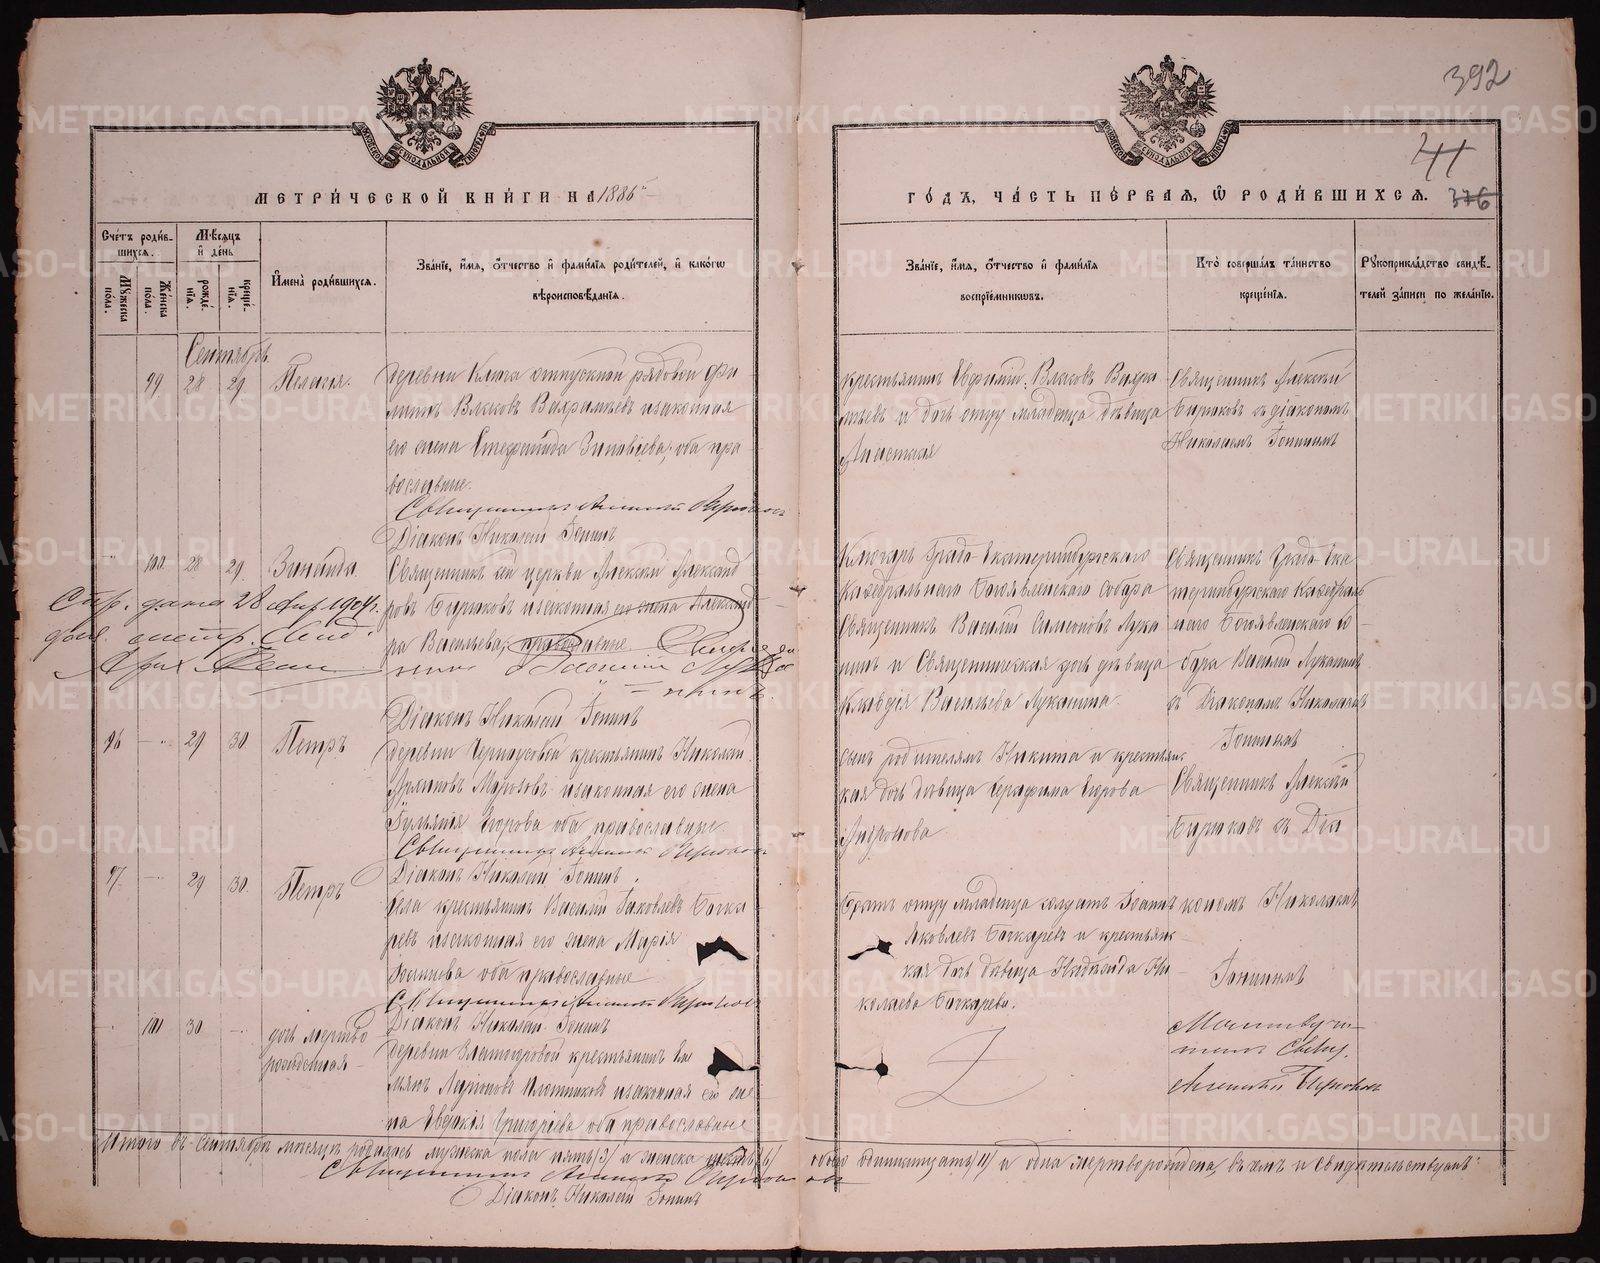 392
41
376
МЕТРИ́ЧЕСКОЙ КНИ́ГИ НА 1886
ГО́ДЪ, ЧА́СТЬ ПЕ́РВАЯ, Ѿ РОДИ́ВШИХСЯ.
Сче́тъ роди́в-
шихся.
Мꙋжеска по́ла.
Же́нска по́ла.
Мѣ́сяцъ
и҆ де́нь
рожде́нїя.
креще́нїя.
И҆мена̀ роди́вшихся.
Зва́нїе, и҆́мя, ѻ҆́тчество и҆ фами́лїя роди́телей, и҆ како́гѡ
вѣроисповѣ́данїя.
Зва́нїе, и҆́мя, ѻ҆́тчество и҆ фами́лїя
воспрїе́мникѡвъ.
Кто̀ соверша́лъ та́инство
креще́нїя.
Рꙋкоприкла́дство свидѣ́-
телей за́писи по жела́нїю.
Сентябрь
99 28 29 Пелагія.
деревни Ключа отпускной рядовой Фи-
липъ Власовъ Вахрамѣевъ и законная
его жена Стефанида Зиновіева; оба пра-
вославные.
Священникъ Алексій Бирюковъ
Діаконъ Николай Тонинъ
крестьянинъ Евфимій Власовъ Вахра
мѣевъ и дочь отцу младенца дѣвица
Анастасія
Священникъ Алексѣй
Бирюковъ съ діакономъ
Николаемъ Тонинымъ
100 28 29 Зинаида.
Священникъ сей церкви Алексій Александ
ровъ Бирюковъ и законная его жена Александ
ра Васильева; православные.
Діаконъ Николай Тонинъ
Спр. дана 28 1904 г.
Ключарь Градо Екатеринбургскаго
Кафедральнаго Богоявленскаго Собора
Священникъ Василій Симеоновъ Лука
нинъ и Священническая дочь дѣвица
Клавдія Васильева Луканина.
Священникъ Градо Ека
теринбургскаго Кафедраль
наго Богоявленскаго Со-
бора Василій Луканинъ
съ Діакономъ Николаемъ
Тонинымъ
96 29 30 Петръ
деревни Черноусовой крестьянинъ Николай
Морозовъ и законная его жена
Іуліанія Егорова оба православные
Священникъ Алексій Бирюковъ
Діаконъ Николай Тонинъ.
сынъ родителямъ Никита и крестьян-
кая дочь дѣвица Серафима Егорова
Андронова
Священникъ Алексѣй
Бирюковъ съ Діа
кономъ Николаемъ
Тонинымъ
97 29 30 Петръ
села крестьянинъ Василій Яковлевъ Бочка
ревъ и законная его жена Марія
оба православные
Священникъ Алексій Бирюковъ
Діаконъ Николай Тонинъ
Братъ отцу младенца солдатъ Іоаннъ
Яковлевъ Бочкаревъ и крестьян-
кая дочь дѣвица Ни-
колаева Бочкарева.
101 30 дочь мертво
рожденная
деревни крестьянинъ Еме
льянъ и законная его же-
на Евдокія Григоріева оба православные
Священ.
Алексій Бирюковъ
Итого въ Сентябрѣ мѣсяцѣ родилось мужеска пола пять (5) а женска шесть (6)
обоего одиннадцать (11) и одна мертворожденна, въ чемъ и свидѣтельствуемъ:
Священникъ Алексій Бирюковъ
Діаконъ Николай Тонинъ
METRIKI.GASO-URAL.RU